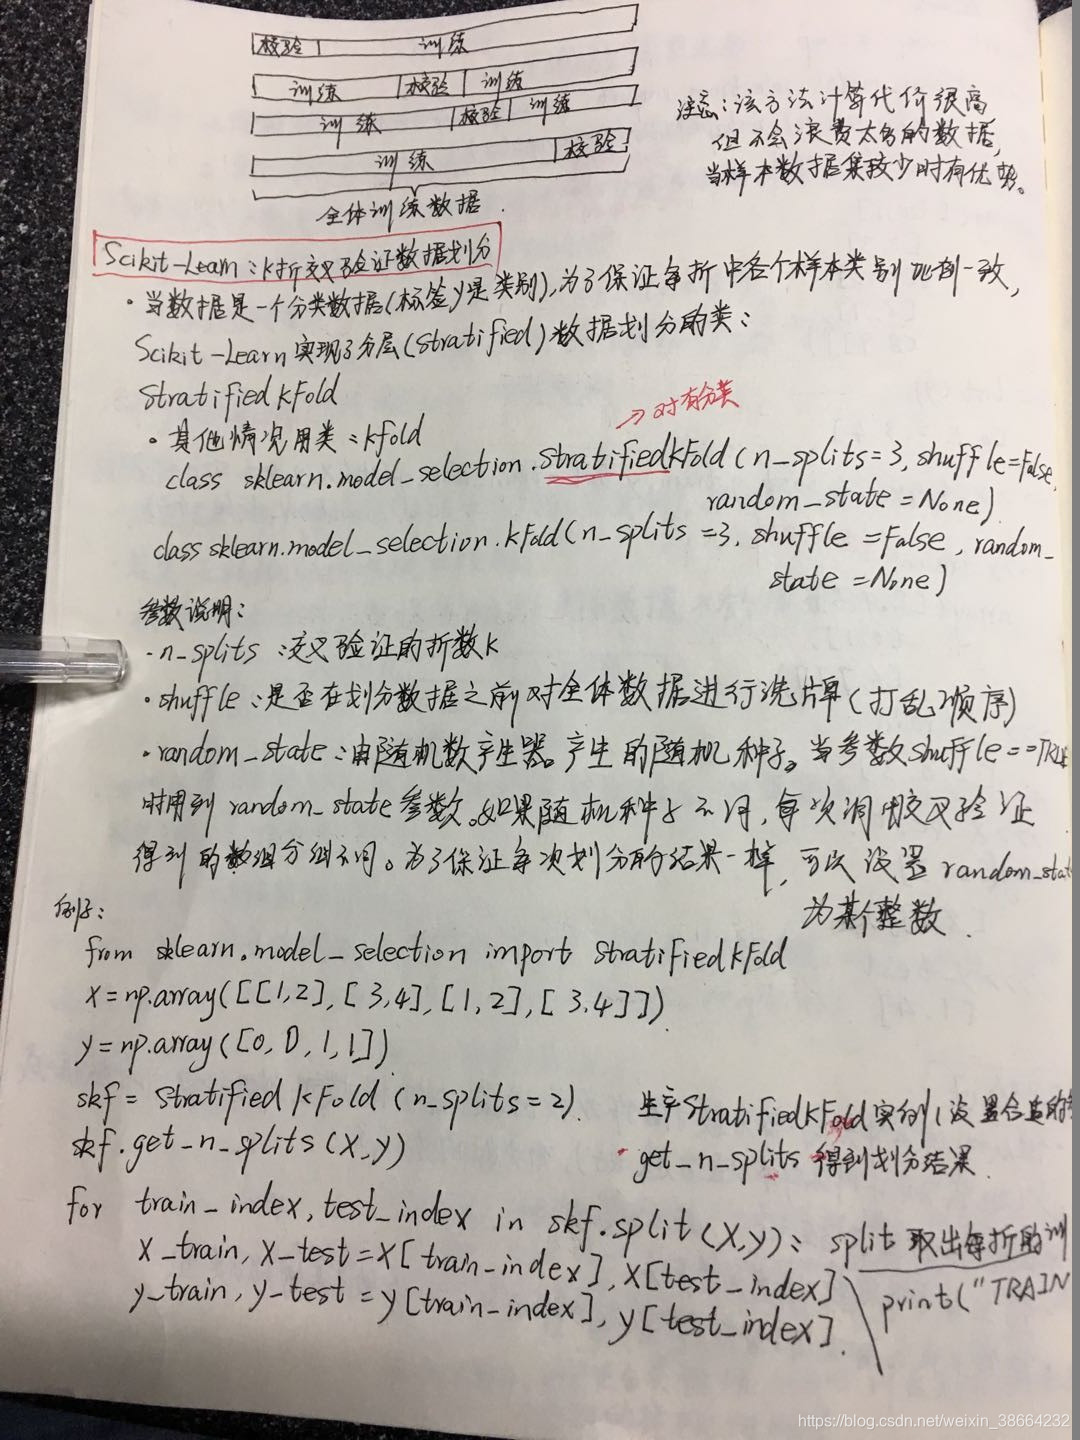 校验 训练
训练 校验 训练
训练 校验 训练
训练 校验
全体训练数据.
注意:该方法计算代价很高
但不会浪费太多的数据,
当样本数据集较少时有优势。
Scikit-Learn:K折交叉验证数据划分
·当数据是一个分类数据(标签y是类别),为了保证每折中各个样本类别比例一致,
Scikit-Learn实现了分层(Stratified)数据划分的类:
StratifiedKFold
→对有分类
·其他情况用类:kfold
class sklearn.model_selection.StratifiedKFold(n_splits=3,shuffle=False,
random_state=None)
class sklearn.model_selection.KFold(n_splits=3,shuffle=False,random_
state=None)
参数说明:
·n_splits:交叉验证的折数K
·shuffle:是否在划分数据之前对全体数据进行洗牌(打乱顺序)
·random_state:由随机数产生器。产生的随机种子。当参数shuffle==TRUE
时用到random_state参数。如果随机种子不同,每次调用交叉验证
得到的数组分组不同。为了保证每次划分的结果一样,可以设置random_stat
为某个整数.
例子:
from sklearn.model_selection import StratifiedKFold
X=np.array([[1,2],[3,4],[1,2],[3,4]])
y=np.array([0,0,1,1])
skf=StratifiedKFold(n_splits=2)
生产StratifiedKFold实例(设置合适的
skf.get_n_splits(X,y)
·get_n_splits得到划分结果.
for train_index,test_index in skf.split(X,y): split取出每折的训
X_train,X_test=X[train_index],X[test_index]
print("TRAIN
y_train,y_test=y[train_index],y[test_index].
https://blog.csdn.net/weixin_38664232